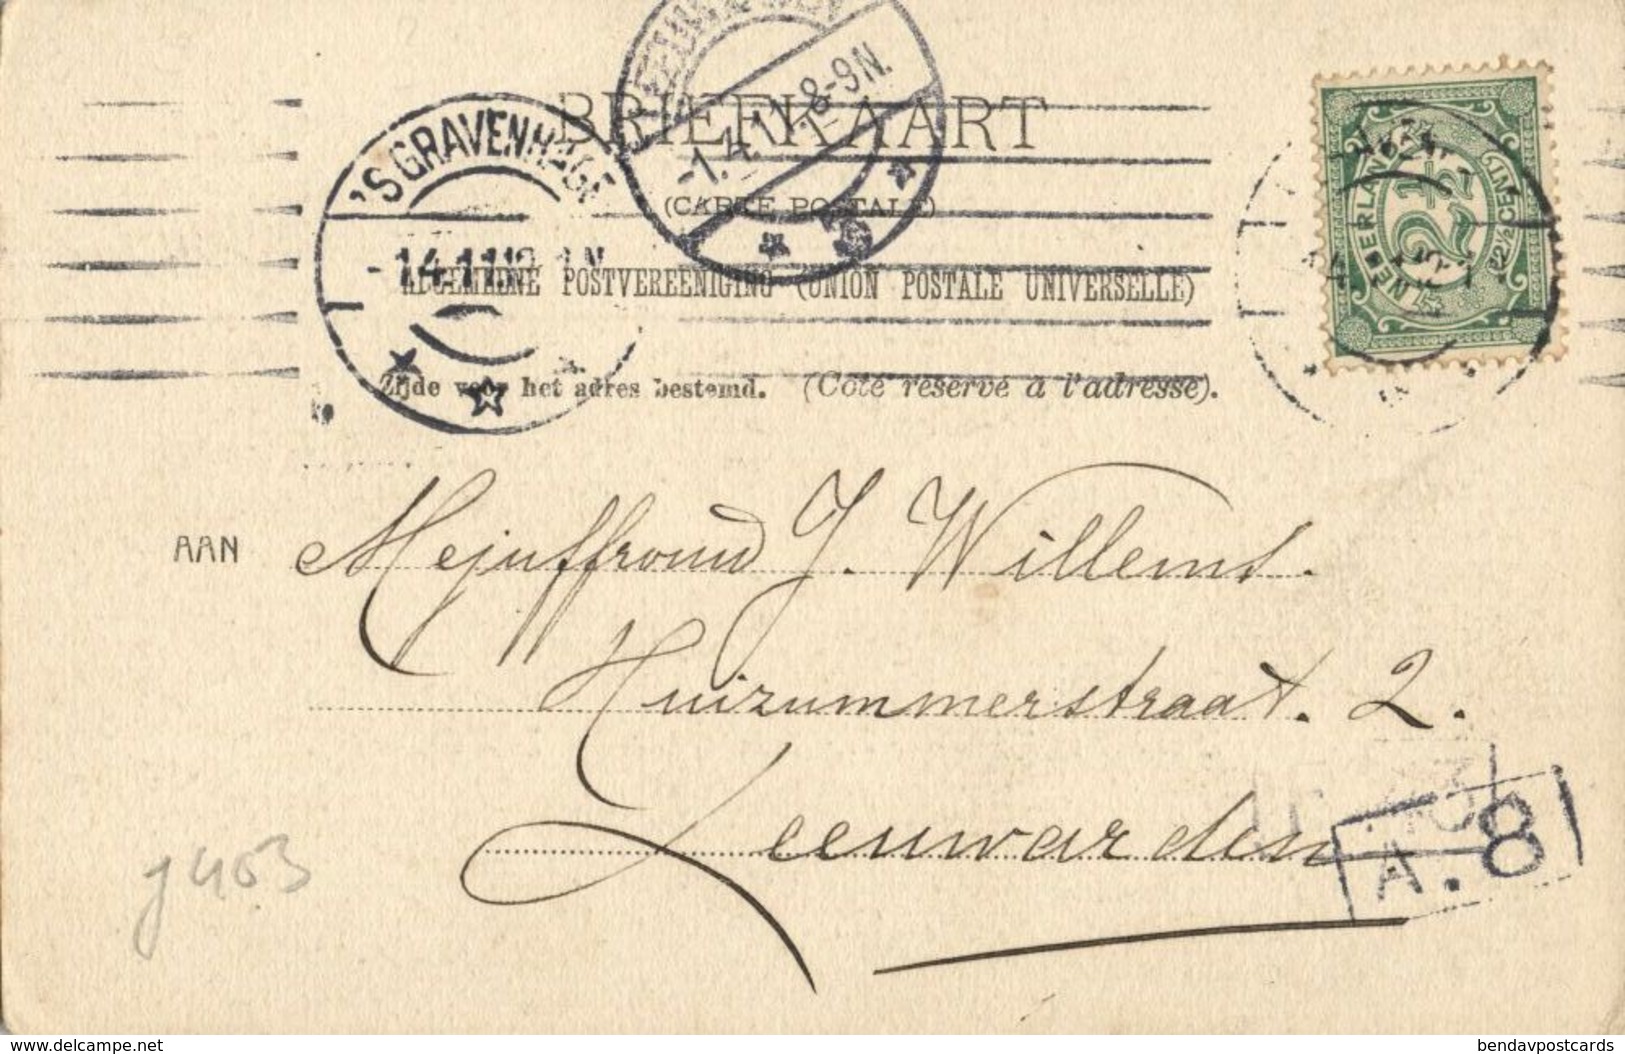 BRIEFKAART
(CARTE POSTALE)
ALGEMEENE POSTVEREENIGING (UNION POSTALE UNIVERSELLE)
Zijde voor het adres bestemd. (Côté réservé à l'adresse).
'S GRAVENHAGE
-1.4.11
-1.4.11. 8-9N.
NEDERLAND
2½
2½ CENT
AAN Mejuffroud J. Willems.
Huizummerstraat. 2.
Leeuwarden
A. 8
delcampe.net
bendavpostcards